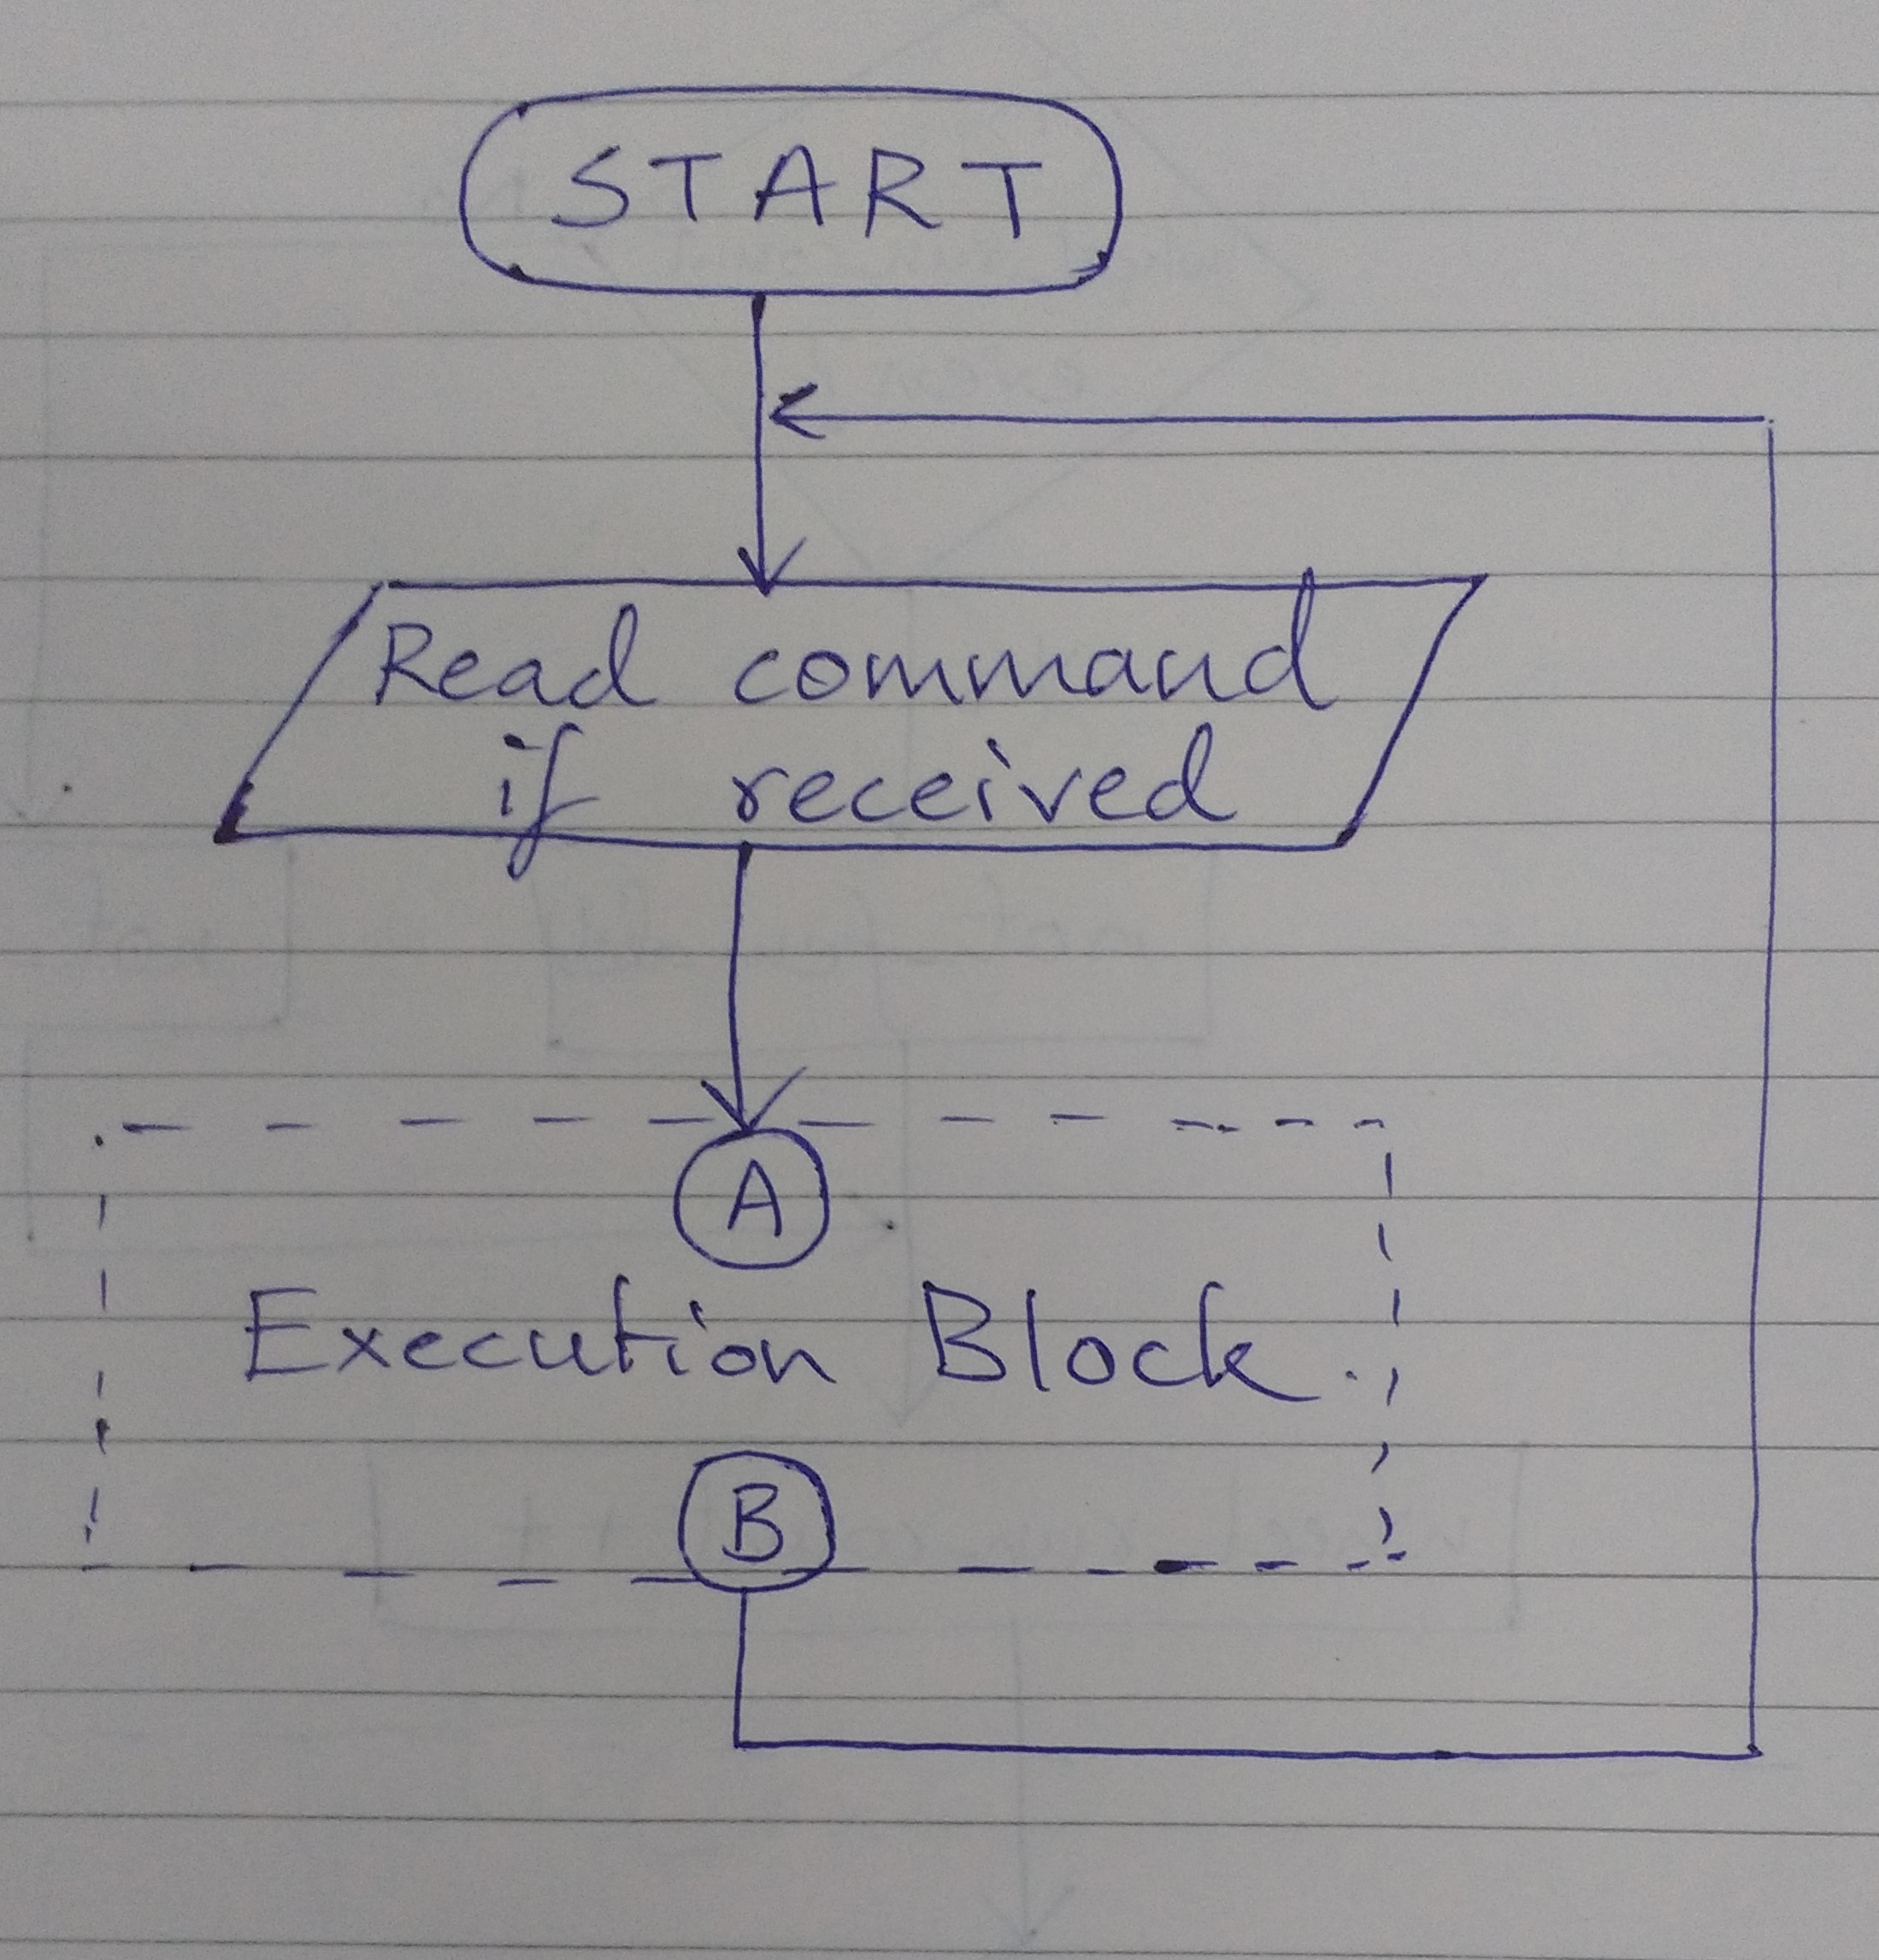 START
Read command
if received
A
Execution Block.
B